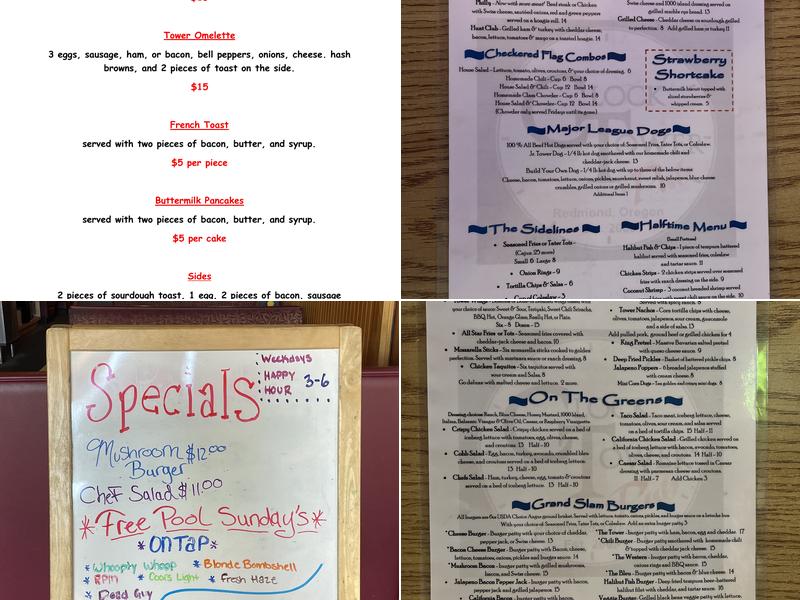 Tower Omelette
3 eggs, sausage, ham, or bacon, bell peppers, onions, cheese. hash
browns, and 2 pieces of toast on the side.
$15
French Toast
served with two pieces of bacon, butter, and syrup.
$5 per piece
Buttermilk Pancakes
served with two pieces of bacon, butter, and syrup.
$5 per cake
Sides
2 pieces of sourdough toast, 1 egg, 2 pieces of bacon, sausage
with Swiss cheese, sautéed onions, red and green peppers
served on a hoagie roll. 14
Hunt Club - Grilled ham & turkey with cheddar cheese,
bacon, lettuce, tomatoes & mayo on a toasted hoagie. 14
Swiss cheese and 1000 island dressing served on
grilled marble rye bread. 13
Grilled Cheese - Cheddar cheese on sourdough grilled
to perfection. 8 Add grilled ham or turkey 11
Checkered Flag Combos
House Salad - Lettuce, tomato, olives, croutons, & your choice of dressing. 6
Homemade Chili - Cup 6 Bowl 8
House Salad & Chili - Cup 12 Bowl 14
Homemade Clam Chowder - Cup 6 Bowl 8
House Salad & Chowder - Cup 12 Bowl 14
(Chowder only served Fridays until its gone)
Strawberry
Shortcake
• Buttermilk biscuit topped with
sliced strawberries &
whipped cream. 5
Major League Dogs
100 % All Beef Hot Dogs served with your choice of Seasoned Fries, Tater Tots, or Coleslaw.
Jr. Tower Dog - 1/4 lb hot dog smothered with our homemade chili and
cheddar-jack cheese. 13
Build Your Own Dog - 1/4 lb hot dog with up to three of the below items
Cheese, bacon, tomatoes, lettuce, onions, pickles, sauerkraut, sweet relish, jalapenos, blue cheese
crumbles, grilled onions or grilled mushrooms. 10
Additional Items 1
Redmond, Oregon
The Sidelines
• Seasoned Fries or Tater Tots -
(Cajun .25 more)
Small 6 Large 8
• Onion Rings - 9
• Tortilla Chips & Salsa - 6
• Cup of Coleslaw - 3
Halftime Menu
(Small Portions)
Halibut Fish & Chips - 1 piece of tempura battered
halibut served with seasoned fries, coleslaw
and tartar sauce. 11
Chicken Strips - 2 chicken strips served over seasoned
fries with ranch dressing on the side. 9
Coconut Shrimp - 3 coconut breaded shrimp served
Specials
Weekdays
HAPPY
HOUR 3-6
Mushroom $12.00
Burger
Chef Salad $11.00
*Free Pool Sunday's*
*ON TAP*
* Whoophy Whoop * Blonde Bombshell
* RPM * Coors Light * Fresh Haze
* Dead Guy
your choice of sauces Sweet & Sour, Teriyaki, Sweet Chili Sriracha,
BBQ, Hot, Orange Glaze, Really Hot, or Plain.
Six - 8 Dozen - 15
• All Star Fries or Tots - Seasoned fries covered with
cheddar-jack cheese and bacon. 10
• Mozzarella Sticks - Six mozzarella sticks cooked to golden
perfection. Served with marinara sauce or ranch dressing. 8
• Chicken Taquitos - Six taquitos served with
sour cream and Salsa. 8
Go deluxe with melted cheese and lettuce. 2 more.
served with spicy sauce. 8
• Tower Nachos - Corn tortilla chips with cheese,
olives, tomatoes, jalapenos, sour cream, guacamole
and a side of salsa. 13
Add pulled pork, ground beef or grilled chicken for 4
• King Pretzel - Massive Bavarian salted pretzel
with queso cheese sauce. 9
• Deep Fried Pickles - Basket of battered pickle chips. 8
Jalapeno Poppers - 6 breaded jalapenos stuffed
with cream cheese. 8
Mini Corn Dogs - Ten golden and crispy mini dogs. 8
On The Greens
Dressing choices: Ranch, Blue Cheese, Honey Mustard, 1000 Island,
Italian, Balsamic Vinegar & Olive Oil, Caesar, or Raspberry Vinaigrette
• Crispy Chicken Salad - Crispy chicken served on a bed of
iceberg lettuce with tomatoes, egg, olives, cheese,
and croutons. 13 Half - 10
• Cobb Salad - Egg, bacon, turkey, avocado, crumbled bleu
cheese, and croutons served on a bed of iceberg lettuce.
13 Half - 10
• Chefs Salad - Ham, turkey, cheese, egg, tomato & croutons
served on a bed of iceberg lettuce. 13 Half - 10
• Taco Salad - Taco meat, iceberg lettuce, cheese,
tomatoes, olives, sour cream, and salsa served
on a bed of tortilla chips. 15 Half - 11
• California Chicken Salad - Grilled chicken served on
a bed of iceberg lettuce with bacon, avocado, tomatoes,
olives, cheese, and croutons. 14 Half - 10
• Caesar Salad - Romaine lettuce tossed in Caesar
dressing with parmesan cheese and croutons.
11 Half - 7 Add Chicken 3
Grand Slam Burgers
All burgers are 6oz USDA Choice Angus ground basket. Served with lettuce, tomato, onions, pickles, and burger sauce on a brioche bun
With your choice of Seasoned Fries, Tater Tots, or Coleslaw. Add an extra burger patty 3
*Cheese Burger - Burger patty with your choice of cheddar,
pepper jack, or Swiss cheese. 13
*Bacon Cheese Burger - Burger patty with Bacon, cheese,
lettuce, tomatoes, onions, pickles and burger sauce. 14
*Mushroom Bacon - Burger patty with grilled mushrooms,
bacon, and Swiss cheese. 15
• Jalapeno Bacon Pepper Jack - Burger patty with bacon,
pepper jack and grilled jalapenos. 15
*California Bacon
*The Tower - Burger patty with ham, bacon, egg and cheddar. 17
*Chili Burger - Burger patty smothered with homemade chili
& topped with cheddar jack cheese. 15
*The Western - Burger patty with bacon, cheddar,
onion rings and BBQ sauce. 15
*The Bleu - Burger patty with bacon & blue cheese. 14
Halibut Fish Burger - Deep fried tempura beer-battered
halibut with coleslaw and tartar sauce. 16
Veggie Burger - Grilled black bean veggie patty with lettuce,